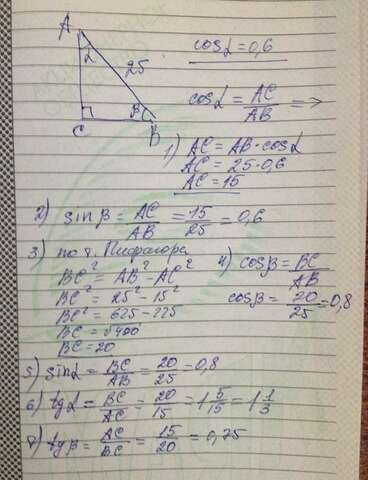 A
cosα = 0,6
α
25
cosα = AC/AB =>
C
β
B
1) AC = AB·cosα
AC = 25·0,6
AC = 15
2) sinβ = AC/AB = 15/25 = 0,6
3) по т. Пифагора
BC² = AB² - AC²
BC² = 25² - 15²
BC² = 625 - 225
BC = √400
BC = 20
4) cosβ = BC/AB
cosβ = 20/25 = 0,8
5) sinα = BC/AB = 20/25 = 0,8
6) tgα = BC/AC = 20/15 = 1 5/15 = 1 1/3
7) tgβ = AC/BC = 15/20 = 0,75